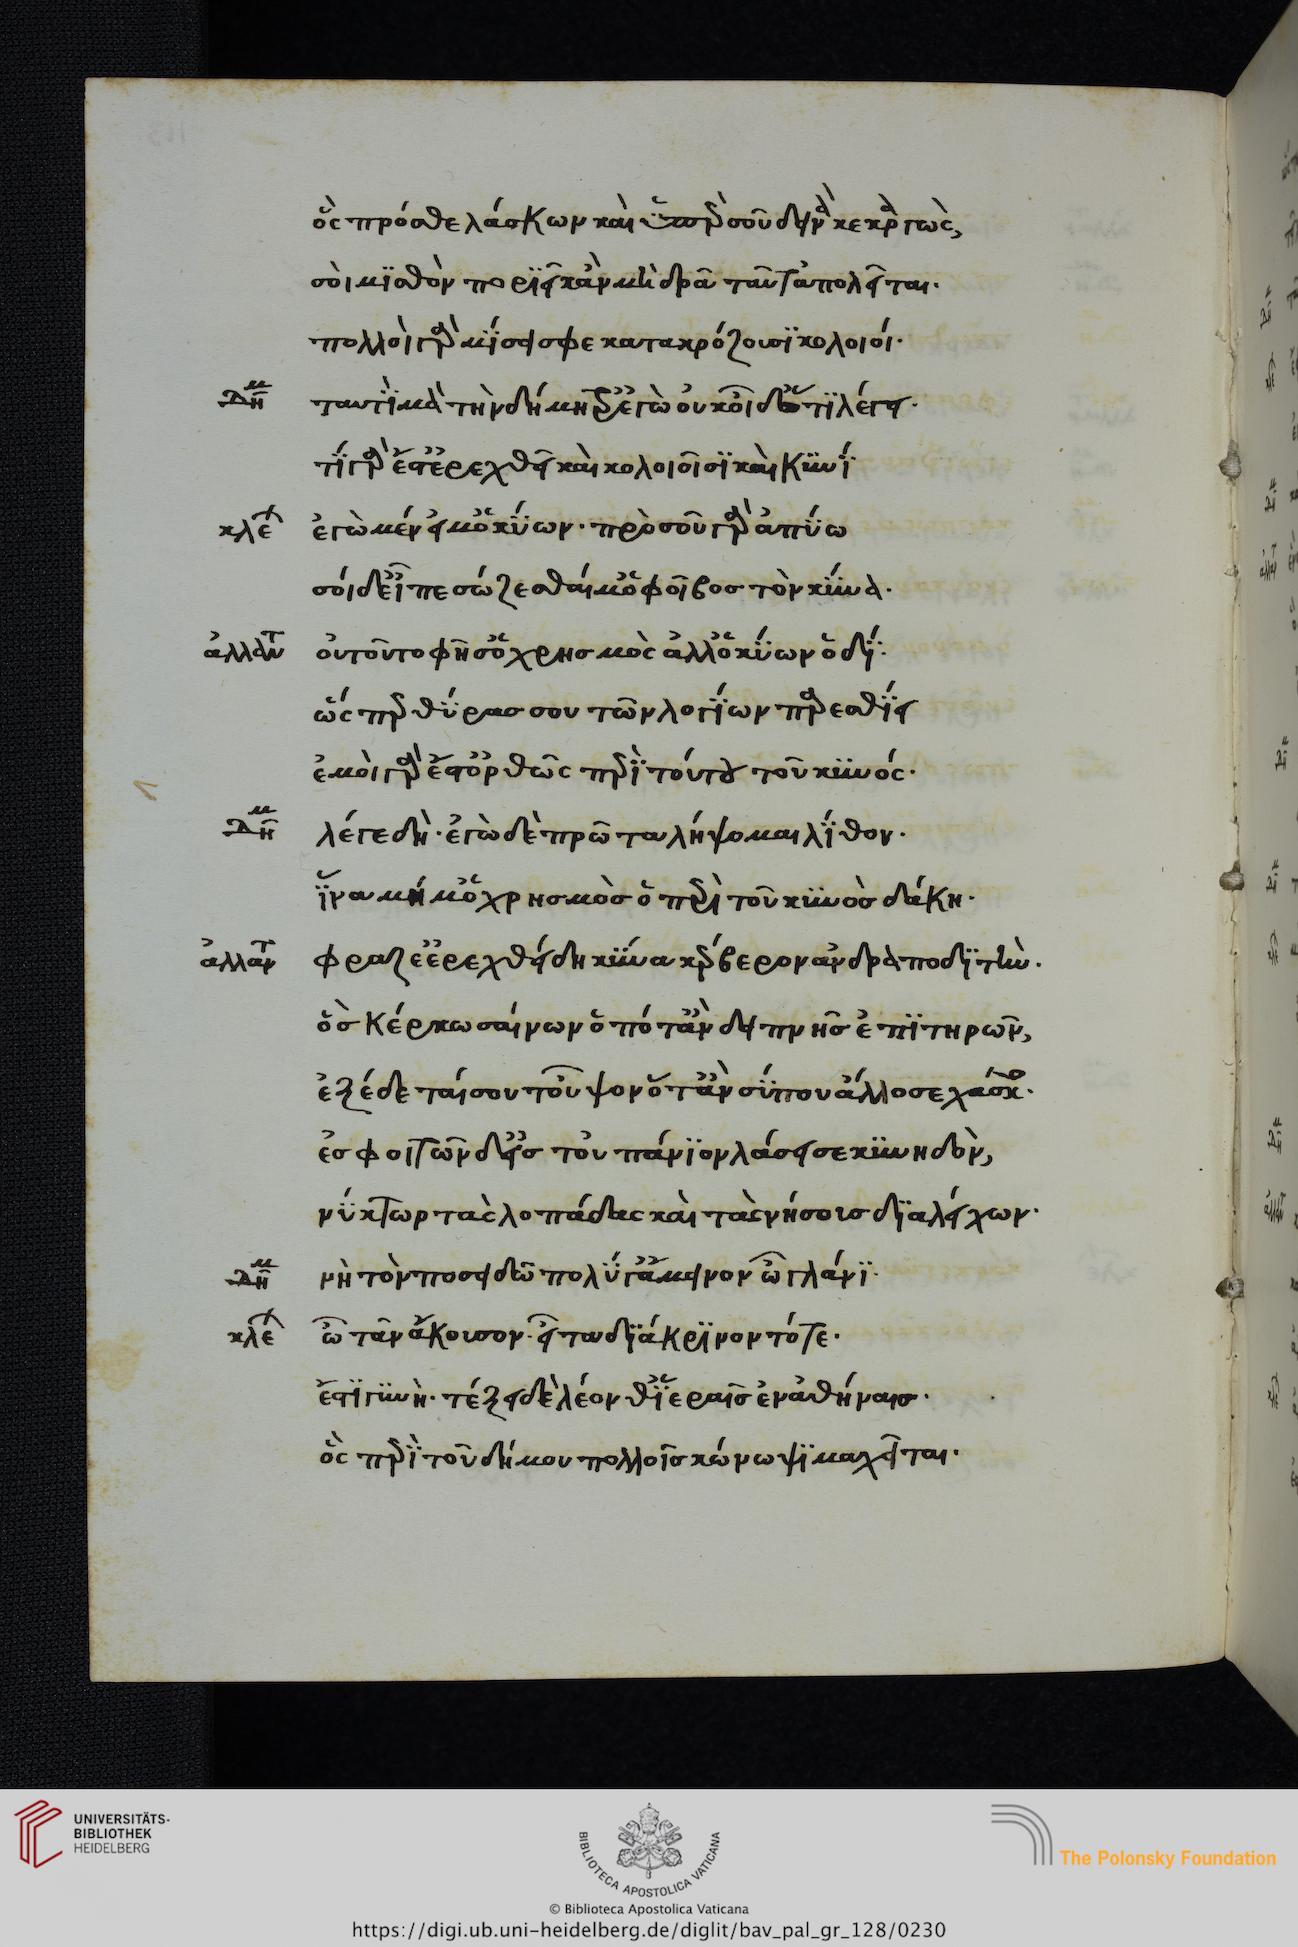 ὃς πρόσθε λάσκων καὶ ὑπὲρ σοῦ δεινὰ κεκραγὼς,
σοὶ μισθὸν ποριεῖ κἂν μὴ δρᾶ ταῦτ' ἀπολεῖται.
πολλοὶ γὰρ μίσει σφε κατακρόζουσι κολοιοί.
Δημ ταυτὶ μὰ τὴν δήμητρ' ἐγὼ οὐκ οἶδ' ὅ τι λέγει.
τί γάρ ἐστ' ἐρεχθεῖ καὶ κολοιοῖσι καὶ κυνί
κλέ ἐγὼ μέν εἰμ' ὁ κύων. πρὸ σοῦ γὰρ ἀπύω
σοὶ δ' εἶπε σώζεσθαί μ' ὁ φοῖβος τὸν κύνα.
ἀλλαν οὐ τοῦτό φησ' ὁ χρησμὸς ἀλλ' ὁ κύων ὁδί.
ὥσπερ θύρας σου τῶν λογίων παρεσθίει
ἐμοὶ γάρ ἐστ' ὀρθῶς περὶ τούτου τοῦ κυνός.
Δημ λέγε δή. ἐγὼ δὲ πρῶτα λήψομαι λίθον.
ἵνα μή μ' ὁ χρησμὸς ὁ περὶ τοῦ κυνὸς δάκη.
ἀλλαν φραζε ἐρεχθείδη κύνα κέρβερον ἀνδραποδιστὴν.
ὃς κέρκω σαίνων ὁπόταν δειπνῆς ἐπιτηρῶν,
ἐξέδεταί σου τοὖψον ὅταν σύ που ἄλλοσε χάσκης.
ἐσφοιτῶν δ' εἰς τοὐπάνιον λάσει σε κυνηδὸν,
νύκτωρ τὰς λοπάδας καὶ τὰς νήσους διαλείχων.
Δημ νὴ τὸν ποσειδῶ πολύ γ' ἄμεινον ὦ γλάνι.
κλέ ὦ τᾶν ἄκουσον. εἶτα διάκρινον τότε.
ἔστι γυνὴ. τέξει δὲ λέονθ' ἱεραῖς ἐν ἀθήναις.
ὃς περὶ τοῦ δήμου πολλοῖς κώνωψι μαχεῖται.
UNIVERSITÄTS-
BIBLIOTHEK
HEIDELBERG
BIBLIOTECA APOSTOLICA VATICANA
The Polonsky Foundation
© Biblioteca Apostolica Vaticana
https://digi.ub.uni-heidelberg.de/diglit/bav_pal_gr_128/0230